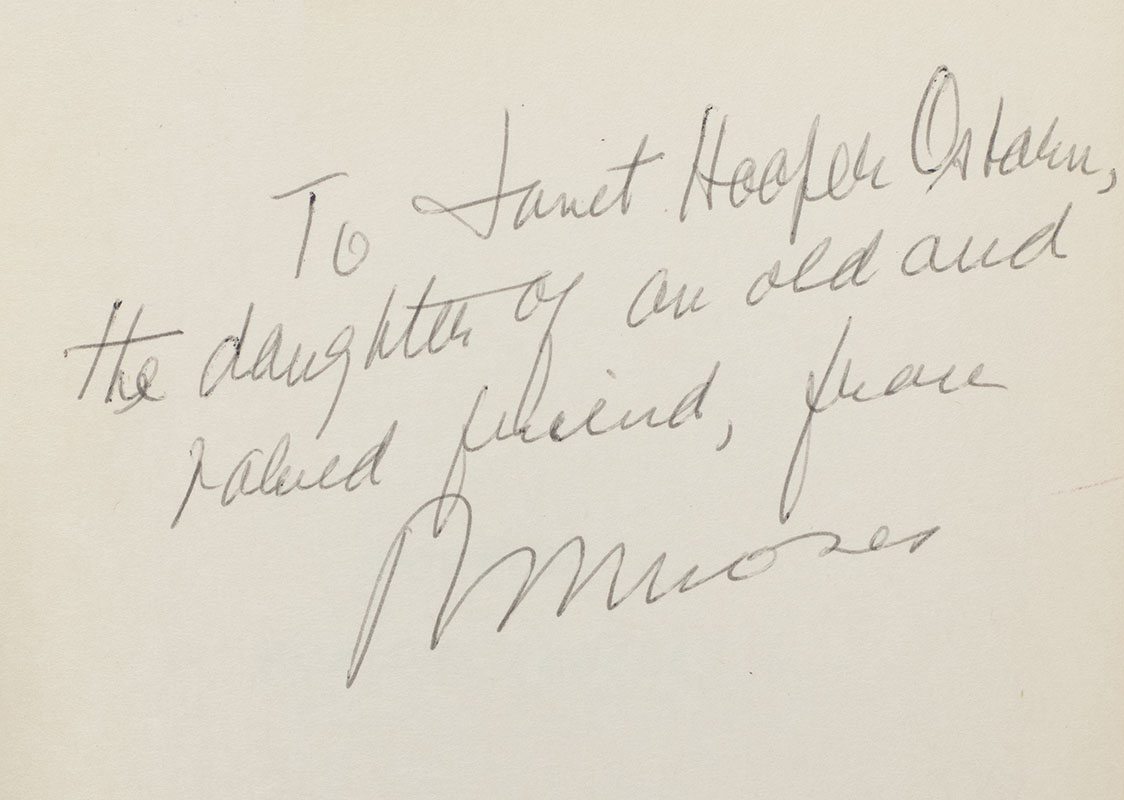 To Janet Hooper Osborn,
the daughter of an old and
valued friend, from
R Moses